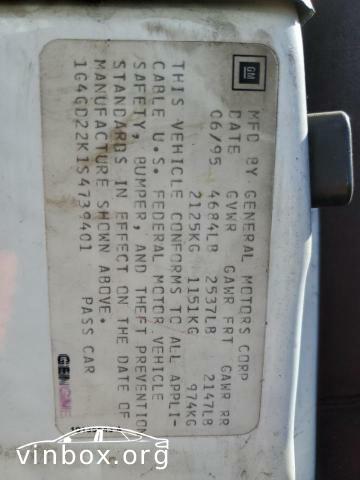 GM
MFD BY GENERAL MOTORS CORP
DATE GVWR GAWR FRT GAWR RR
06/95 4684LB 2537LB 2147LB
2125KG 1151KG 974KG
THIS VEHICLE CONFORMS TO ALL APPLI-
CABLE U.S. FEDERAL MOTOR VEHICLE
SAFETY, BUMPER, AND THEFT PREVENTION
STANDARDS IN EFFECT ON THE DATE OF
MANUFACTURE SHOWN ABOVE.
1G4GD22K1S4739401 PASS CAR
vinbox.org